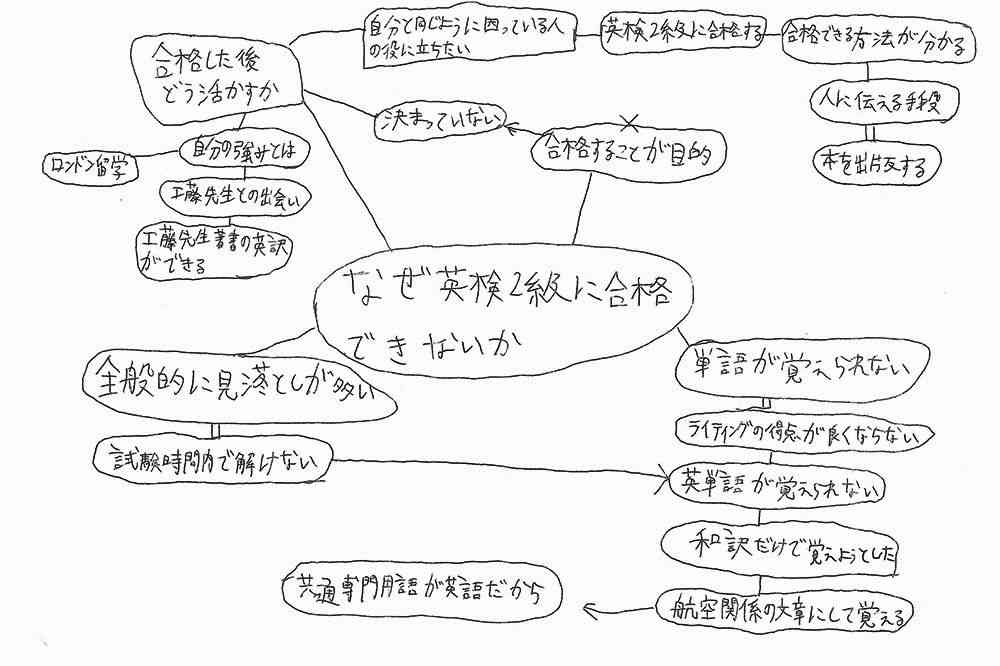 合格した後
どう活かすか
自分と同じように困っている人
の役に立ちたい
英検2級に合格する
合格できる方法が分かる
人に伝える手段
本を出版する
決まっていない
合格することが目的
自分の強みとは
ロンドン留学
工藤先生との出会い
工藤先生著書の英訳
ができる
なぜ英検2級に合格
できないか
全般的に見落としが多い
試験時間内で解けない
単語が覚えられない
ライティングの得点が良くならない
英単語が覚えられない
和訳だけで覚えようとした
航空関係の文章にして覚える
共通専門用語が英語だから